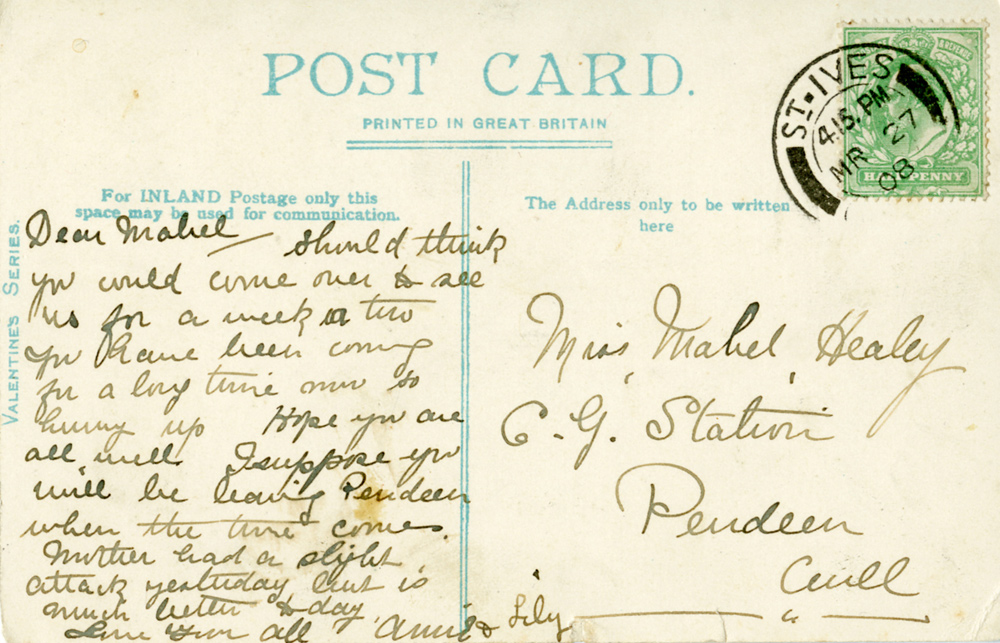 POST CARD.
PRINTED IN GREAT BRITAIN
VALENTINE'S SERIES.
For INLAND Postage only this
space may be used for communication.
The Address only to be written
here
ST. IVES
4.15. PM
MR 27
08
HALFPENNY
Dear Mabel — Should think
you would come over to see
us for a week or two
you have been coming
for a long time now so
hurry up Hope you are
all well. I suppose you
will be leaving Pendeen
when the time comes.
Mother had a slight
attack yesterday but is
much better to day
Love from all Annie & Lily
Miss Mabel Healey
C-G. Station
Pendeen